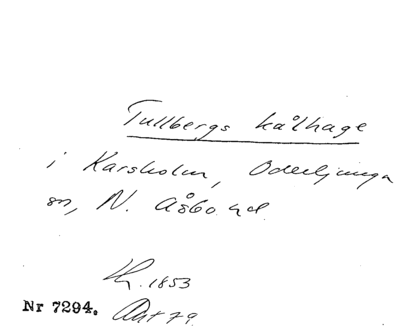 Tullbergs kålhage
i Karsholm, Oderljunga
sn, N. Åsbo hd.
1853
Nr 7294. Akt 79.